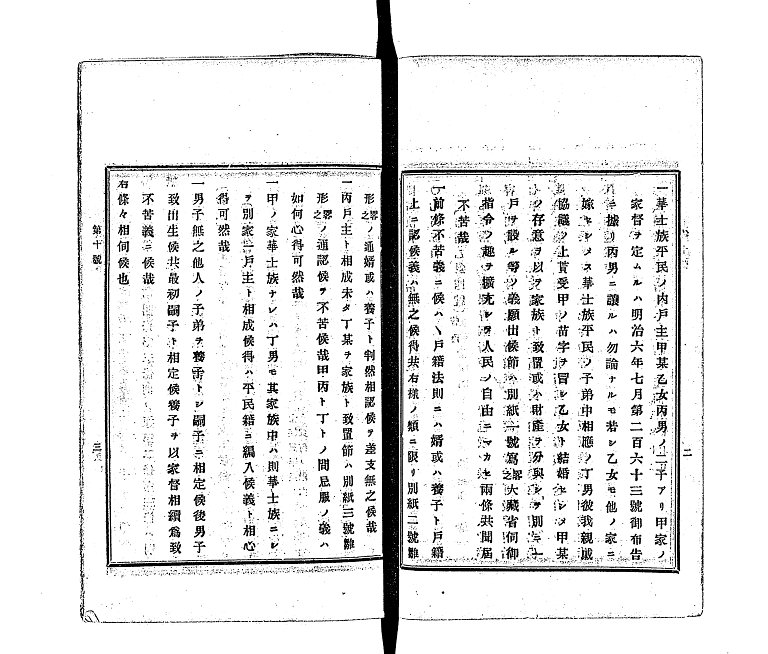 一華士族平民ノ内戸主甲某乙女丙男ノ二子アリ甲家ノ
家督ヲ定ムルハ明治六年七月第二百六十三號御布告
ニ據リ丙男ニ讓ルハ勿論ナルモ若シ乙女モ他ノ家ニ
嫁セシメス華士族平民ノ子弟中相應ノ丁男彼我親戚
協議ノ上貰受甲ノ苗字ヲ冒シ乙女ト結婚セシメ甲某
ノ存意ヲ以テ家族ト致置或ハ財產ヲ分與シテ別ニ一
戸ヲ設ル等ノ義願出候節ハ別紙一號寫略之大藏省伺御
指令ノ趣ヲ擴充シテ人民ノ自由ニマカセ兩條共聞屆
不苦哉
一前條不苦義ニ候ハヽ戸籍法則ニハ婿或ハ養子ト戸籍
上ニ認候義ハ無之候得共右樣ノ類ニ限リ別紙二號雛
二
形略之ノ通婿或ハ養子ト判然相認候ヲ差支無之候哉
一丙戸主ト相成未タ丁某ヲ家族ト致置節ハ別紙三號雛
形略之ノ通認候ヲ不苦候哉甲丙ト丁トノ間忌服ノ義ハ
如何心得可然哉
一甲ノ家華士族ナレハ丁男モ其家族中ハ則華士族ニシ
ヲ別家一戸主ト相成候得ハ平民籍ニ編入候義ト相心
得可然哉
一男子無之他人ノ子弟ヲ養子トシ嗣子ニ相定候後男子
致出生候共最初嗣子ト相定候養子ヲ以家督相續爲致
不苦義ニ候哉
右條々相伺候也
第十號
三